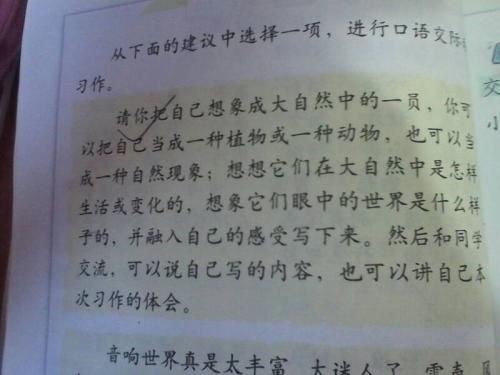 从下面的建议中选择一项，进行口语交际
习作。
请你把自己想象成大自然中的一员，你可
以把自己当成一种植物或一种动物，也可以当
成一种自然现象；想想它们在大自然中是怎样
生活或变化的，想象它们眼中的世界是什么样
子的，并融入自己的感受写下来。然后和同学
交流，可以说自己写的内容，也可以讲自己本
次习作的体会。
音响世界真是太丰富、太迷人了，雷声、风
交
小